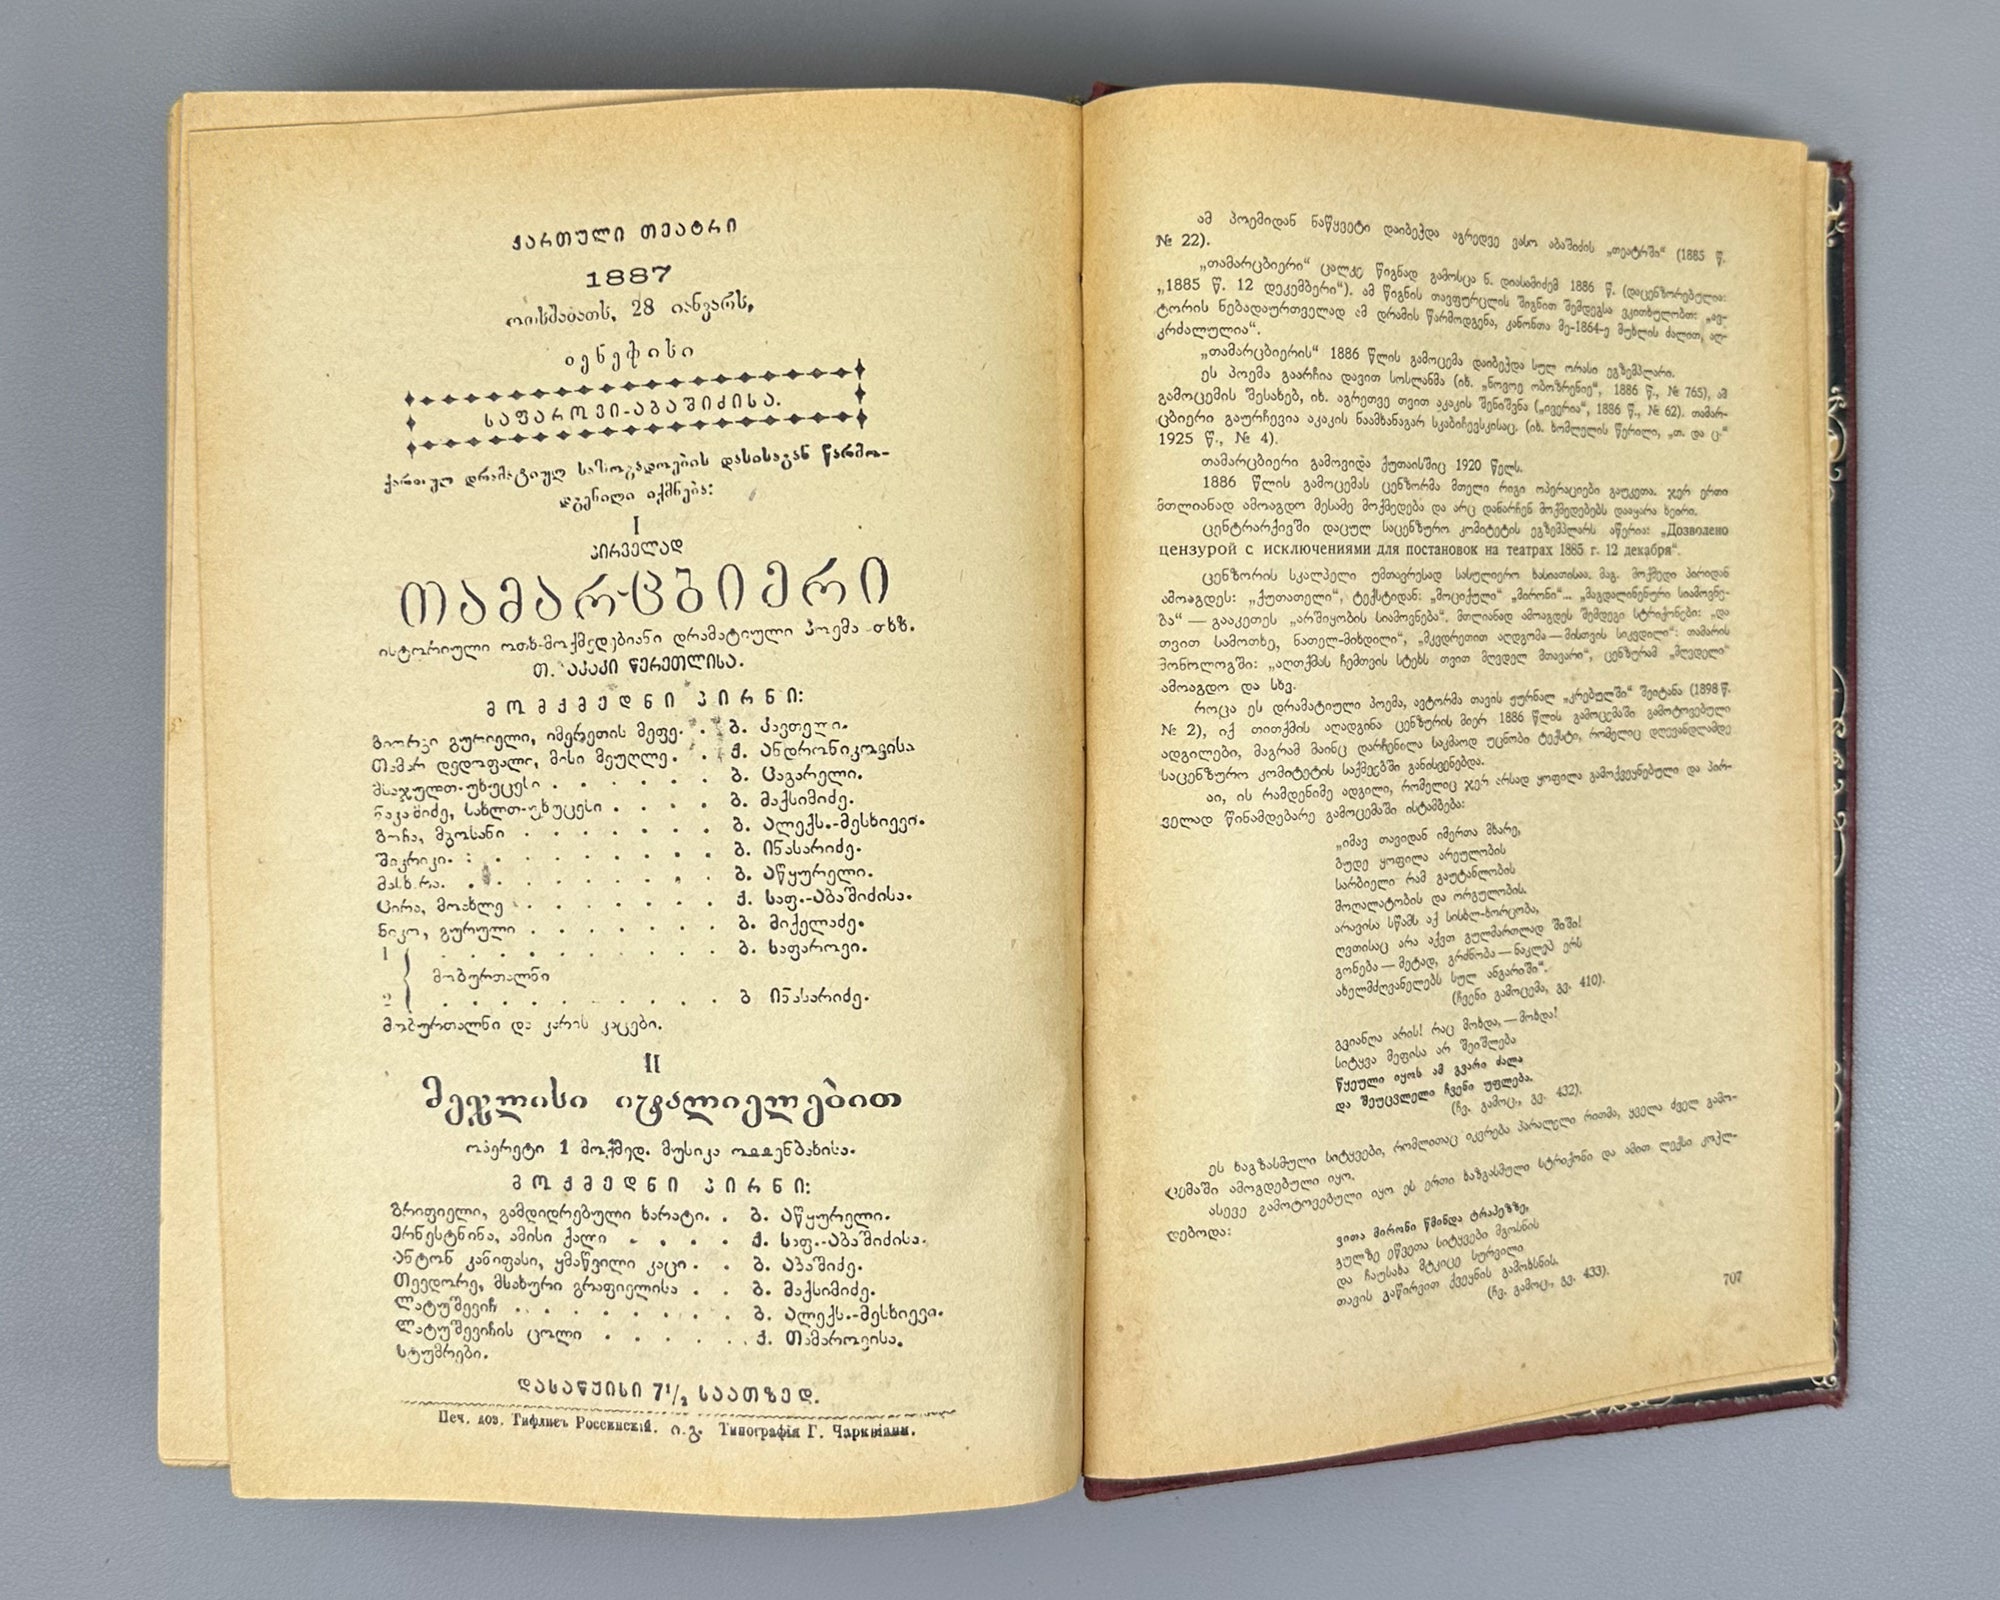 ქართული თეატრი
1887
ოთხშაბათს, 28 იანვარს,
ბენეფისი
საფაროვი-აბაშიძისა.
ქართულ დრამატიულ საზოგადოების დასისაგან წარმო-
დგენილი იქმნება:
I
პირველად
თამარ-ცბიერი
ისტორიული ოთხ-მოქმედებიანი დრამატიული პოემა თხზ.
თ. აკაკი წერეთლისა.
მოქმედნი პირნი:
გიორგი გურიელი, იმერეთის მეფე. . ბ. კავთელი.
თამარ დედოფალი, მისი მეუღლე. . ქ. ანდრონიკოვისა
მსაჯულთ-უხუცესი . . . . . . ბ. ცაგარელი.
ჩაკაძიძე, სახლთ-უხუცესი . . . . ბ. მაქსიმიძე.
გოჩა, მგოსანი . . . . . . . ბ. ალექს.-მესხიევი.
შიკრიკი. . . . . . . . . ბ. ინასარიძე.
მასხარა. . . . . . . . . ბ. აწყურელი.
ცირა, მოახლე . . . . . . . ქ. საფ.-აბაშიძისა.
ნიკო, გურული . . . . . . . ბ. მიქელაძე.
1 . . . . . . . . . . ბ. საფაროვი.
მობურთალნი
2 . . . . . . . . . . ბ ინასარიძე.
მობურთალნი და კარის კაცები.
II
მეჯლისი იტალიელებით
ოპერეტი 1 მოქმედ. მუსიკა ოფფენბახისა.
მოქმედნი პირნი:
გრიფიელი, გამდიდრებული ხარატი. . ბ. აწყურელი.
ერნესტნინა, ამისი ქალი . . . . ქ. საფ.-აბაშიძისა.
ანტონ კანიფასი, ყმაწვილი კაცი . . ბ. აბაშიძე.
თევდორე, მსახური გრაფიელისა . . ბ. მაქსიმიძე.
ლატუშევიჩ . . . . . . . . ბ. ალექს.-მესხიევი.
ლატუშევიჩის ცოლი . . . . . ქ. თამაროვისა.
სტუმრები.
დასაწყისი 7½ საათზედ.
Печ. доз. Тифлисъ Россинскій. ი.გ. Типографія Г. Чарквіани.
ამ პოემიდან ნაწყვეტი დაიბეჭდა აგრედვე ვასო აბაშიძის „თეატრში“ (1885 წ.
№ 22).
„თამარცბიერი“ ცალკე წიგნად გამოსცა ნ. დიასამიძემ 1886 წ. (დაცენზორებულია:
„1885 წ. 12 დეკემბერი“). ამ წიგნის თავფურცლის შიგნით შემდეგსა ვკითხულობთ: „ავ-
ტორის ნებადაურთველად ამ დრამის წარმოდგენა, კანონთა მე-1864-ე მუხლის ძალით, აღ-
კრძალულია“.
„თამარცბიერის“ 1886 წლის გამოცემა დაიბეჭდა სულ ორასი ეგზემპლარი.
ეს პოემა გაარჩია დავით სოსლანმა (იხ. „ნოვოე ობოზრენიე“, 1886 წ., № 765), ამ
გამოცემის შესახებ, იხ. აგრეთვე თვით აკაკის შენიშვნა („ივერია“, 1886 წ., № 62). თამარ-
ცბიერი გაურჩევია აკაკის ნაამხანაგარ სკაბიჩევსკისაც. (იხ. ხომლელის წერილი, „თ. და ც.“
1925 წ., № 4).
თამარცბიერი გამოვიდა ქუთაისშიც 1920 წელს.
1886 წლის გამოცემას ცენზორმა მთელი რიგი ოპერაციები გაუკეთა. ჯერ ერთი
მთლიანად ამოაგდო მესამე მოქმედება და არც დანარჩენ მოქმედებებს დააყარა ხეირი.
ცენტრარქივში დაცულ საცენზურო კომიტეტის ეგზემპლარს აწერია: „Дозволено
цензурой с исключениями для постановок на театрах 1885 г. 12 декабря“.
ცენზორის სკალპელი უმთავრესად სასულიერო ხასიათისაა. მაგ. მოქმედი პირიდან
ამოაგდეს: „ქუთათელი“, ტექსტიდან: „მოციქული“ „მირონი“... „მაგდალინენური სიამოვნე-
ბა“ — გააკეთეს „არშიყობის სიამოვნება“. მთლიანად ამოაგდეს შემდეგი სტრიქონები: „და
თვით სამოთხე, ნათელ-მიხდილი“, „მკვდრეთით აღდგომა — მისთვის სიკვდილი“: თამარის
მონოლოგში: „აღთქმას ჩემთვის სტეხს თვით მღვდელ მთავარი“, ცენზურამ „მღვდელი“
ამოაგდო და სხვ.
როცა ეს დრამატიული პოემა, ავტორმა თავის ჟურნალ „კრებულში“ შეიტანა (1898 წ.
№ 2), იქ თითქმის აღადგინა ცენზურის მიერ 1886 წლის გამოცემაში გამოტოვებული
ადგილები, მაგრამ მაინც დარჩენილა საკმაოდ უცნობი ტექსტი, რომელიც დღევანდლამდე
საცენზურო კომიტეტის საქმეებში განისვენებდა.
აი, ის რამდენიმე ადგილი, რომელიც ჯერ არსად ყოფილა გამოქვეყნებული და პირ-
ველად წინამდებარე გამოცემაში ისტამბება:
„იმავ თავიდან იმერთა მხარე,
ბუდე ყოფილა არეულობის
სარბიელი რამ გაუტანლობის
მოღალატობის და ორგულობის.
არავისა სწამს აქ სისხლ-ხორცობა,
ღვთისაც არა აქვთ გულმართლად შიში!
გონება — მეტად, გრძნობა — ნაკლებ ერს
ახელმძღვანელებს სულ ანგარიში“.
(ჩვენი გამოცემა, გვ. 410).
გვიანღა არის! რაც მოხდა, — მოხდა!
სიტყვა მეფისა არ შეიშლება
წყეული იყოს ამ გვარი ძალა
და შეუცვლელი ჩვენი უფლება.
(ჩვ. გამოც., გვ. 432).
ეს ხაგზასმული სიტყვები, რომლითაც იკვრება პარალელი რითმა, ყველა ძველ გამო-
ცემაში ამოგდებული იყო.
ასევე გამოტოვებული იყო ეს ერთი ხაზგასმული სტრიქონი და ამით ლექსი კოჭლ-
დებოდა:
ვითა მირონი წმინდა ტრაპეზზე,
გულზე ეწვეთა სიტყვები მგოსნის
და ჩაუსახა მტკიცე სურვილი
თავის გაწირვით ქვეყნის გამოხსნის.
(ჩვ. გამოც., გვ. 433).
707